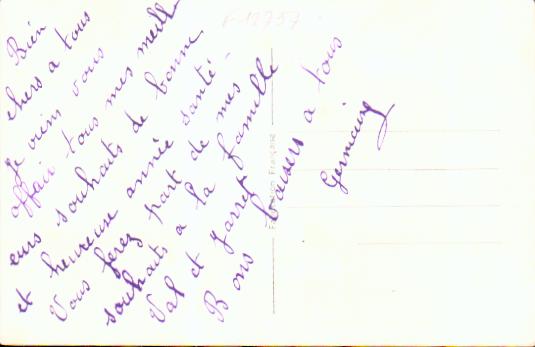 Bien
chers a tous
Je viens vous
offrir tous mes meill
eurs souhaits de bonne
et heureuse année santé -
Vous ferez part de mes
souhaits a la famille
Val et Jarret
Bons baisers a tous
Germaine
F-12757
Fabrication Française